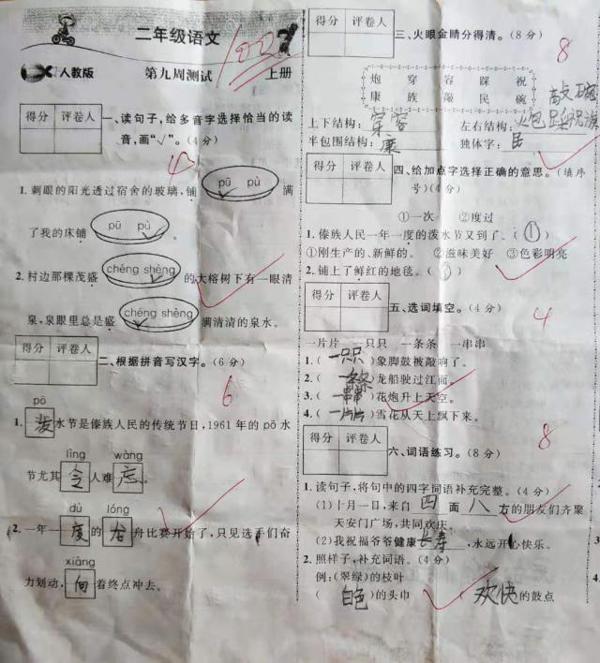 二年级语文
100
人教版
第九周测试
上册
得分 评卷人
一、读句子,给多音字选择恰当的读
音,画“√”。(4分)
4
1. 刺眼的阳光透过宿舍的玻璃,铺 pū pù 满
了我的床铺 pū pù
2. 村边那棵茂盛 chéng shèng 的大榕树下有一眼清
泉,泉眼里总是盛 chéng shèng 满清清的泉水。
得分 评卷人
二、根据拼音写汉字。(6分)
6
pō
1. 泼 水节是傣族人民的传统节日,1961年的pō水
lìng wàng
节尤其 令 人难 忘 。
dù lóng
2. 一年一 度 的 龙 舟比赛开始了,只见选手们奋
xiàng
力划动, 向 着终点冲去。
得分 评卷人
三、火眼金睛分得清。(8分)
8
炮 穿 容 踩 祝
康 族 敲 民 碗
敲 碗
上下结构: 穿容 左右结构: 火包 踩 祝 族
半包围结构: 康 独体字: 民
得分 评卷人
四、给加点字选择正确的意思。(填序
号)(4分)
①一次 ②度过
1. 傣族人民一年一度的泼水节又到了。( ① )
①刚生产的、新鲜的。 ②滋味美好 ③色彩明亮
2. 铺上了鲜红的地毯。( ③ )
得分 评卷人
五、选词填空。(4分)
4
一片片 一只只 一条条 一串串
1. ( 一只只 )象脚鼓被敲响了。
2. ( 一条条 )龙船驶过江面。
3. ( 一串串 )花炮升上天空。
4. ( 一片片 )雪花从天上飘下来。
得分 评卷人
8
六、词语练习。(8分)
1. 读句子,将句中的四字词语补充完整。(4分)
(1)十月一日,来自 四 面 八 方的朋友们齐聚
天安门广场,共同欢庆。
(2)我祝福爷爷健康 长寿 ,永远开心快乐。
2. 照样子,补充词语。(4分)
例:(翠绿)的枝叶
( 白色 )的头巾 ( 欢快 )的鼓点